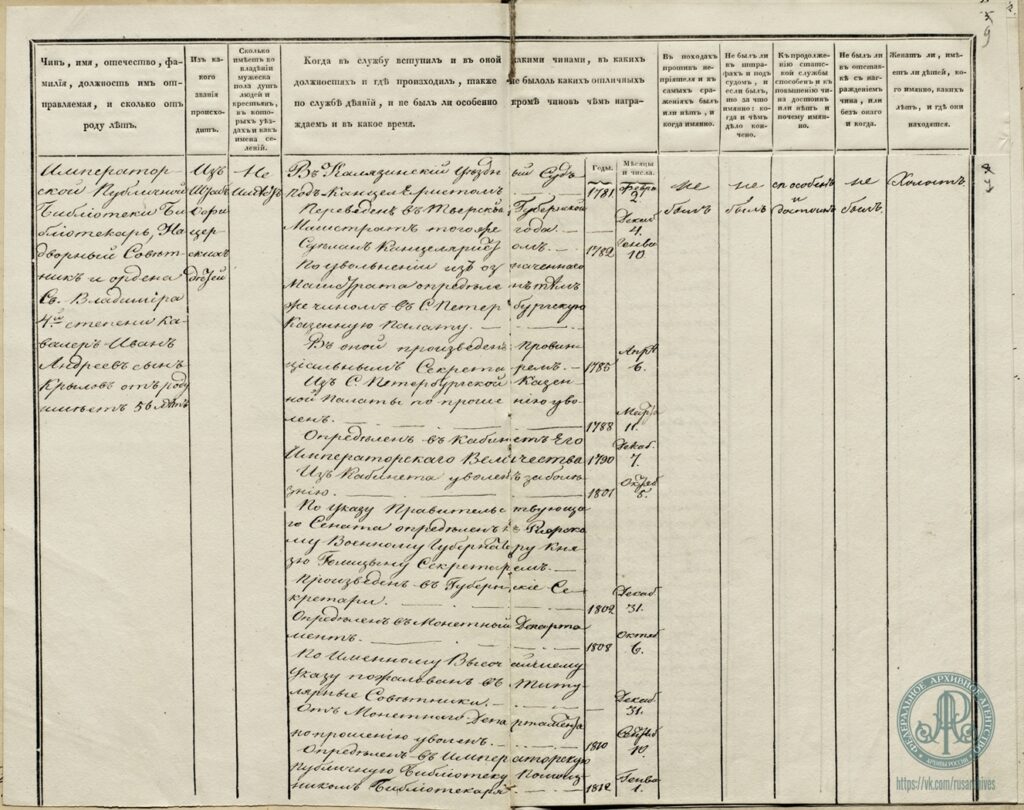 Чинъ, имя, отечество, фа-
милія, должность им от-
правляемая, и сколько отъ
роду лѣтъ.
Изъ ка-
кого
званія
происхо-
дитъ.
Сколько
имѣетъ во
владѣніи
мужеска
пола душъ
людей и
крестьянъ,
въ кото-
рыхъ уѣз-
дахъ и какъ
имена се-
леній.
Когда въ службу вступилъ и въ оной какими чинами, въ какихъ
должностяхъ и гдѣ происходилъ, также не былоль какихъ отличныхъ
по службѣ дѣяній, и не был ли особенно кромѣ чиновъ чѣмъ награ-
ждаемъ и въ какое время.
Въ походахъ
противъ не-
пріятеля и въ
самыхъ сра-
женіяхъ былъ
или нѣтъ, и
когда именно.
Не былъ ли
въ штра-
фахъ и подъ
судомъ, и
если былъ,
то за что
именно: ко-
гда и чемъ
дѣло кон-
чено.
Къ продолже-
нію статс-
кой службы
способенъ и къ
повышенію чи-
на достоинъ
или нѣтъ и
почему имян-
но.
Не былъ ли
въ отстав-
кѣ съ на-
гражденіемъ
чина, или
безъ онаго
и когда.
Женатъ ли, имѣ-
етъ ли дѣтей, ко-
го именно, какихъ
лѣтъ, и гдѣ они
находятся.
Император-
ской Публичной
Библіотеки Би-
бліотекарь, На-
дворный Совѣт-
никъ и ордена
Св. Владиміра
4й степени ка-
валеръ Иванъ
Андреевъ сынъ
Крыловъ отъ роду
имѣетъ 56 лѣтъ
Изъ
Штабъ
Офи-
церс-
кихъ
дѣтей
Не
имѣетъ
Годы.
Мѣсяцы
и числа.
Въ Калязинскій Уѣздный Судъ
подъ Канцеляристомъ 1781 Февра 2.
Переведенъ въ Тверской Губернской
Магистратъ того же года. Декаб 4.
Сдѣланъ Канцеляристомъ. 1782 Генва 10
По увольненіи изъ означеннаго
Магистрата опредѣленъ тѣмъ
же чиномъ въ С. Петербургскую
Казенную Палату.
Въ оной произведенъ Провин-
ціальнымъ Секретаремъ. 1785 Апрѣ 6.
Изъ С. Петербургской Казен-
ной Палаты по прошенію уво-
ленъ. 1788 Марта 11.
Опредѣленъ въ Кабинетъ Его
Императорскаго Величества 1790 Декаб. 7.
Изъ Кабинета уволенъ за болѣ-
знію. 1801 Октяб 5.
По указу Правительствующа-
го Сената опредѣленъ къ Рижско-
му Военному Губернатору Кня-
зю Голицыну Секретаремъ.
Произведенъ въ Губернскіе Се-
кретари. 1802 Декаб 31.
Опредѣленъ въ Монетный Департа-
ментъ. 1808 Октяб 6.
По Именному Высочайшему
Указу пожалованъ въ Титу-
лярные Совѣтники. Декаб 31.
Отъ Монетнаго Департамента
по прошенію уволенъ. 1810 Сентяб 10.
Опредѣленъ въ Императорскую
Публичную Библіотеку Помощ-
никомъ Библіотекаря 1812 Генва 1.
не
былъ
не
былъ
способенъ
и
достоинъ
не
былъ.
Холостъ.
ФЕДЕРАЛЬНОЕ АРХИВНОЕ АГЕНТСТВО
АРХИВЫ РОССИИ
https://vk.com/rusarchives